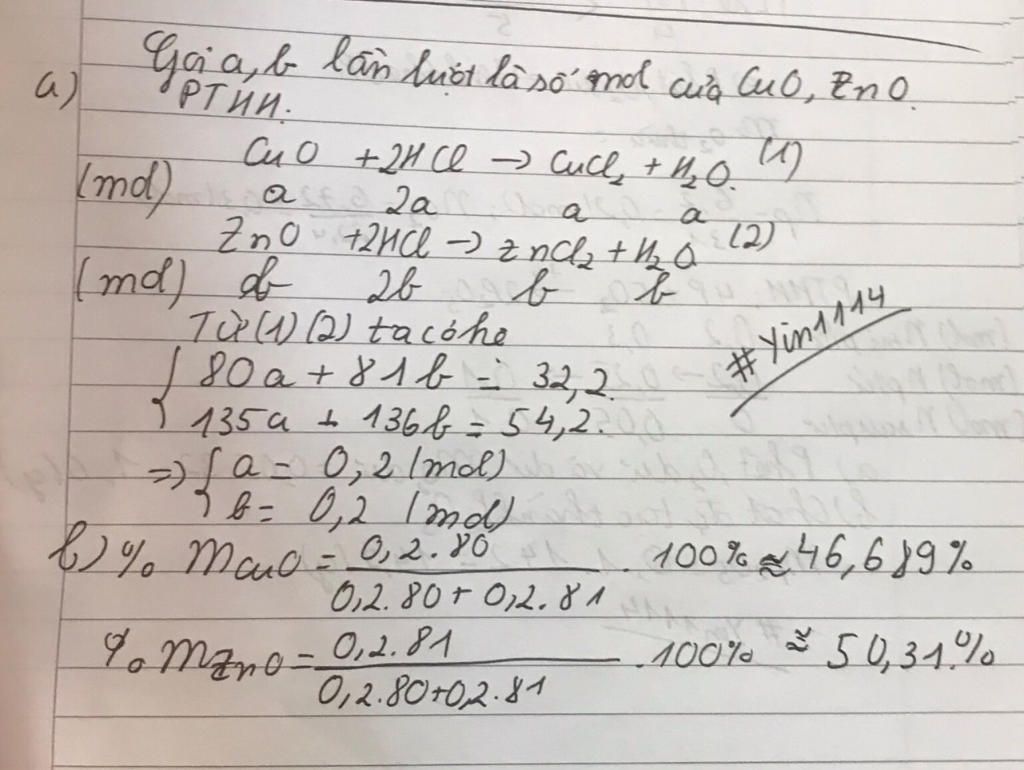 Gọi a, b lần lượt là số mol của CuO, ZnO.
a) PTHH.
CuO + 2HCl → CuCl₂ + H₂O. (1)
(mol) a 2a a a
ZnO + 2HCl → ZnCl₂ + H₂O (2)
(mol) b 2b b b
Từ (1) (2) ta có hệ
{ 80a + 81b = 32,2.
135a + 136b = 54,2.
#Yin1114
=> { a = 0,2 (mol)
b = 0,2 (mol)
b) % mCuO = 0,2.80 / 0,2.80 + 0,2.81 . 100% ≈ 46,689%
% mZnO = 0,2.81 / 0,2.80+0,2.81 . 100% ≈ 50,31%